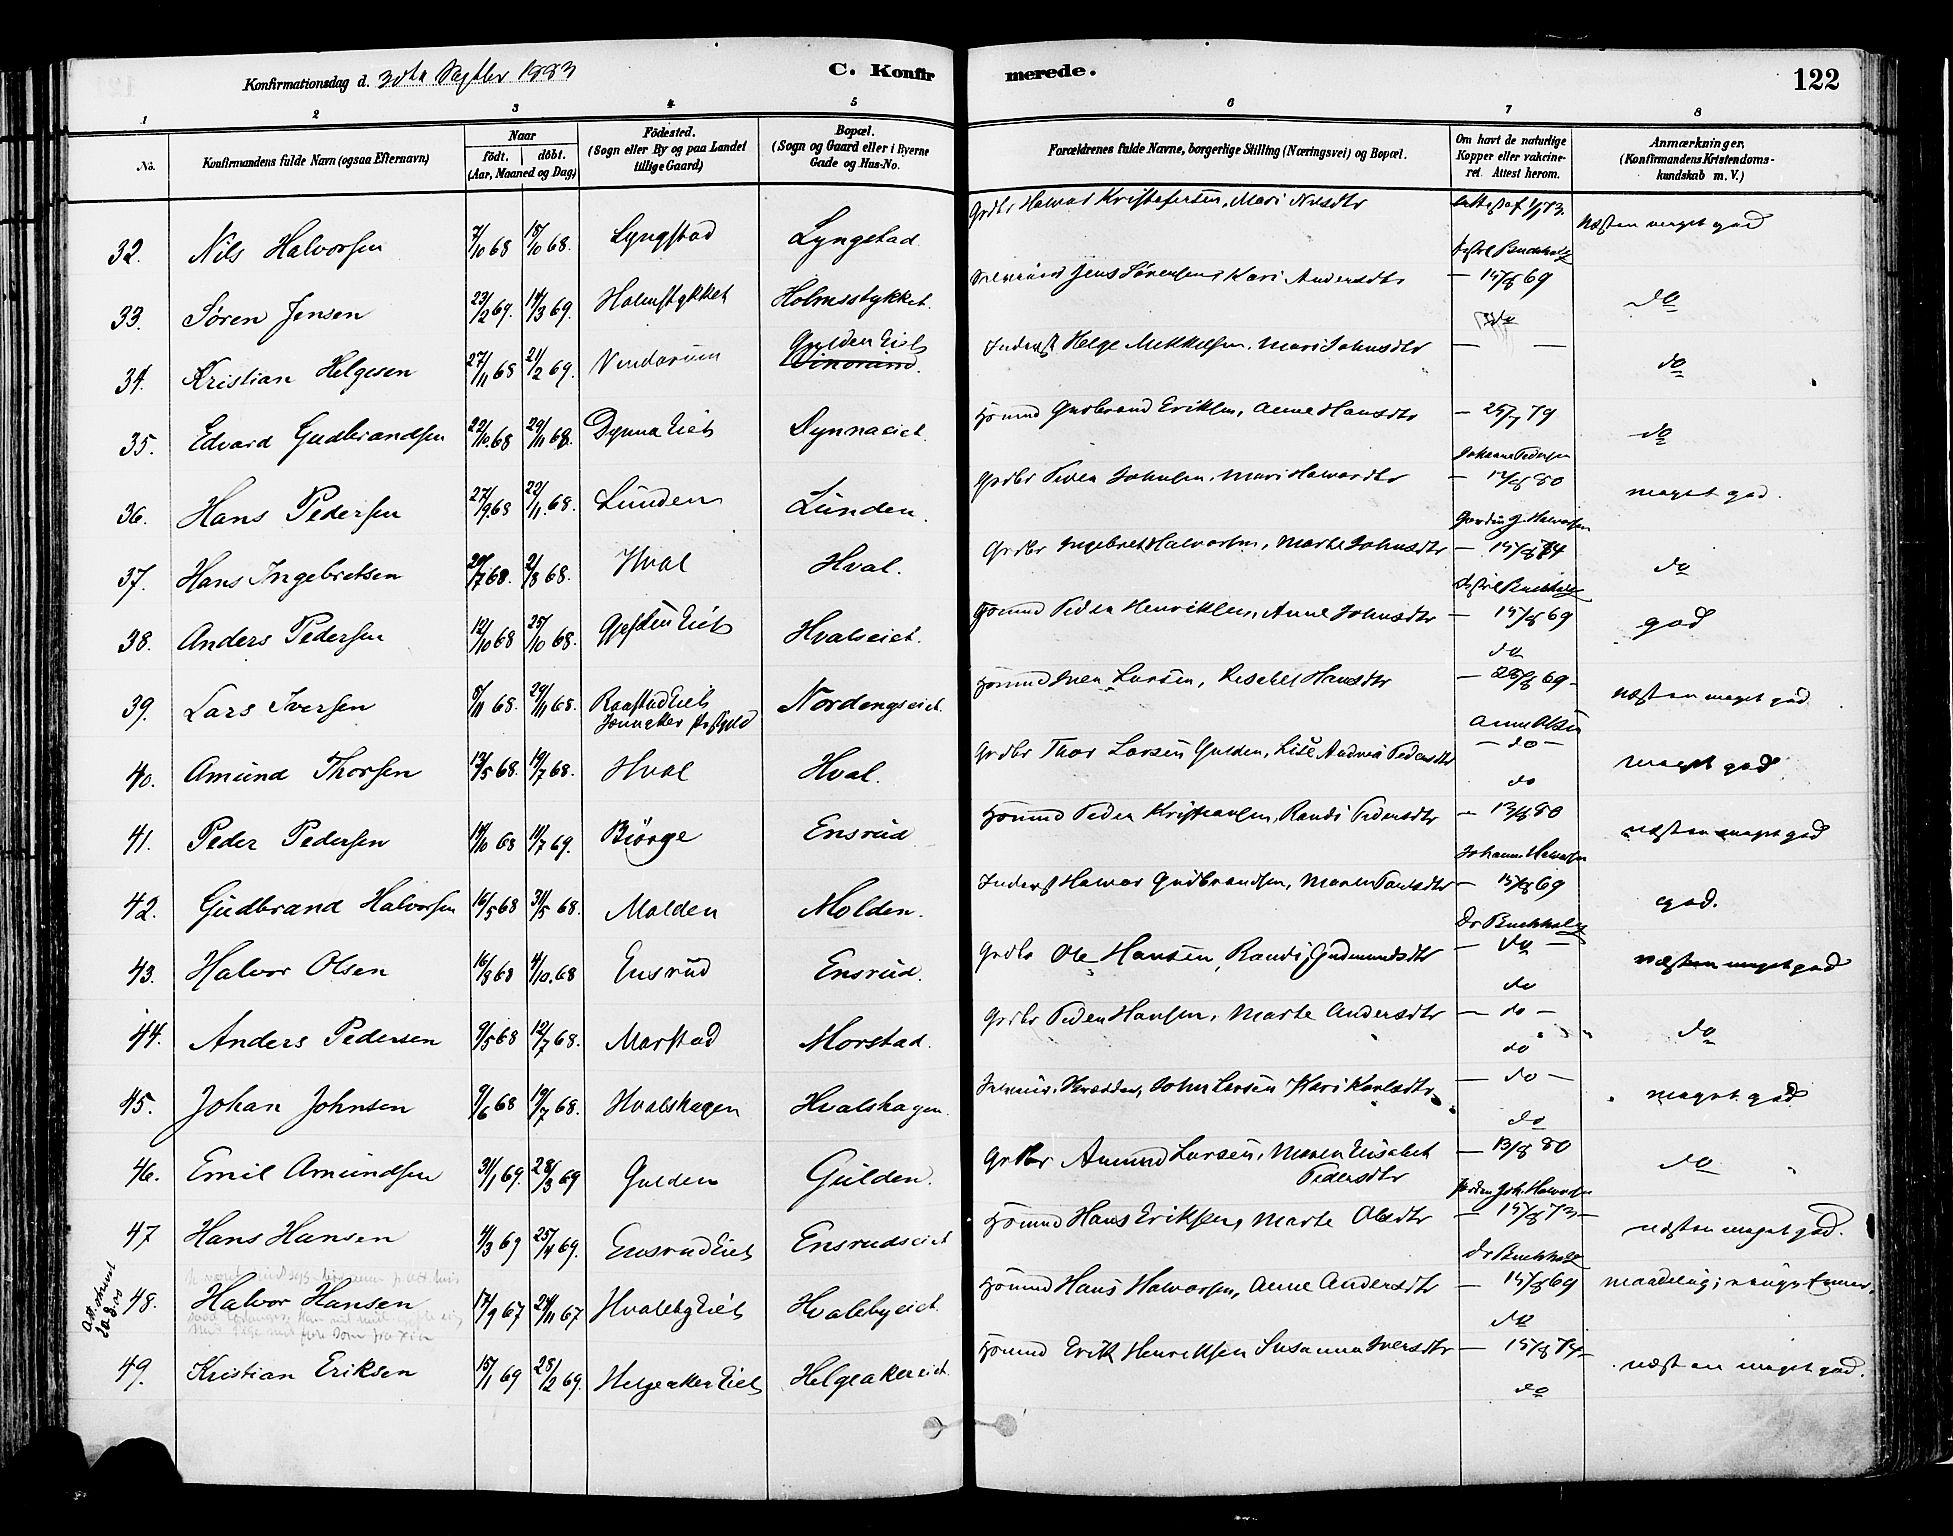 Konfirmationsdag d. 30te Septbr 1883
C. Konfirmerede.
122
1 2 3 4 5 6 7 8
No.
Konfirmandens fulde Navn (ogsaa Efternavn)
Naar
födt. döbt.
(Aar, Maaned og Dag)
Födested.
(Sogn eller By og paa Landet
tillige Gaard)
Bopæl.
(Sogn og Gaard eller i Byerne
Gade og Hus-No.
Forældrenes fulde Navne, borgerlige Stilling (Næringsvei) og Bopæl.
Om havt de naturlige
Kopper eller vakcine-
ret. Attest herom.
Anmærkninger,
(Konfirmandens Kristendoms-
kundskab m. V.)
32. Nils Halvorsen 7/10 68 18/10 68. Lyngstad Lyngstad. Grdbr Halvor Kristofersen, Mari Nilsdtr Næsten meget god
33. Søren Jensen 23/2 69. 14/3 69. Holmstykket Holmsstykket. Jens Sørensen, Kari Andersdtr — 15/8 69 do
34. Kristian Helgesen 27/11 68 21/2 69. Gulden Eiet Inderst Helge Mikkelsen, Mari Johnsdtr — — do
35. Edvard Gudbrandsen 22/10 68 29/11 68. Dynna Eiet Dynnaeiet. Husmd Gudbrand Eriksen, Anne Hansdtr — 25/7 79 do
Johanne Pedersen
36. Hans Pedersen 27/9 68 22/11 68. Lunden Lunden. Grdbr Peder Johnsen, Mari Halvordtr — 13/8 80 meget god.
37. Hans Ingebretsen 20/7 68. 2/8 68. Hval Hval. Grdbr Ingebret Halvorsen, Marte Johnsdtr — 15/8 74 do
38. Anders Pedersen 12/10 68 25/10 68. Hvalseiet Husmd Peder Henriksen, Anne Johnsdtr — 15/8 69 god
do
39. Lars Iversen 8/11 68. 29/11 68. Raastad Eiet Jevnaker Præstgjeld Nordengseiet. Husmd Iver Larsen, Lisebet Hansdtr — 28/8 69 — næsten meget god
Anne Olsen
40. Amund Thorsen 13/5 68. 19/7 68. Hval Hval. Grdbr Thor Larsen Gulden, Lise Andrea Pedersdtr — do — meget god
do
41. Peder Pedersen 19/10 68 11/7 69. Biørge Ensrud Husmd Peder Kristiansen, Randi Pedersdtr — 13/8 80 næsten meget god
Johanne Halvorsen
42. Gudbrand Halvorsen 16/5 68 31/5 68. Molden Molden. Inderst Halvor Gudbrandsen, Maren Paulsdtr — 15/8 69 god.
Dr Buchholz
43. Halvor Olsen 16/8 68 4/10. 68 Ensrud Ensrud. Grdbr Ole Hansen, Randi Gudmundsdtr — do — næsten meget god
do
44. Anders Pedersen 9/5 68 12/7 68. Morstad Morstad. Grdbr Peder Hansen, Marte Andersdtr — do — do
do
45. Johan Johnsen 9/6 68 19/7 68. Hvalshagen Hvalshagen. John Larsen, Kari Karlsdtr — do — meget god
do
46. Emil Amundsen 31/1 69. 28/3 69 Gulden Gulden. Grdbr Amund Larsen, Maren Elisabet Pedersdtr — 13/8 80 do
47 Hans Hansen 4/3 69 25/4 69. Ensrud Eiet Ensrudseiet Husmd Hans Eriksen, Marte Olsdtr — 15/8 73 — næsten meget god.
Dr Buchholz
48. Halvor Hansen 17/9 67 24/11 67 Hvaleby Eiet Hvalebyeiet. Husmd Hans Halvorsen, Anne Andersdtr — 15/8 69 maadelig;
do
49. Kristian Eriksen 15/1 69 28/2 69. Helgeaker Eiet Helgeakereiet. Husmd Erik Henriksen, Susanna Iversdtr — 15/8 74 — næsten meget god.
do